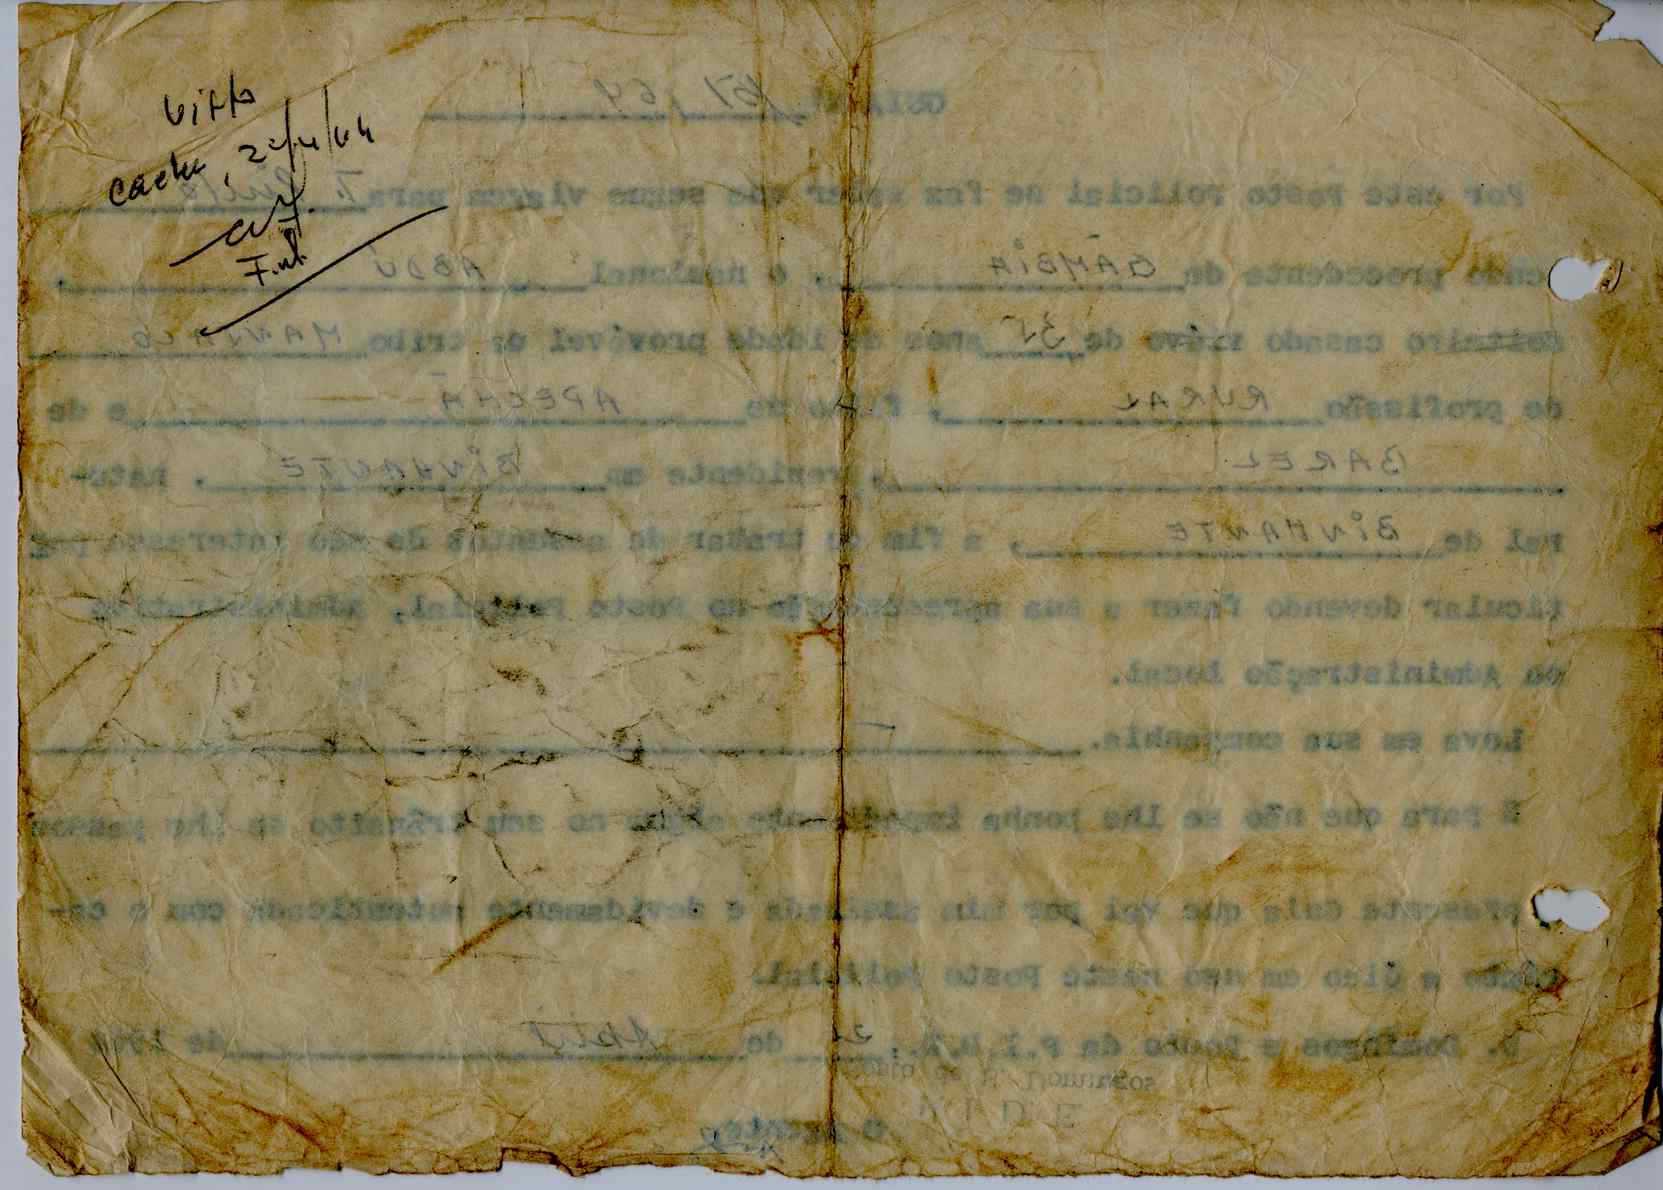 Visto
Cacheu, 22/4/64
GUIA Nº 151/64
Por este Posto Policial se faz saber que segue viagem para T. Pinto
sendo procedente de GAMBIA, o nacional ABDÚ,
solteiro casado viúvo de 35 anos de idade provável da tribo MANJACO
de profissão RURAL, filho de APECHA e de
BAREL, residente em BINHANTE, natu-
ral de BINHANTE, a fim de tratar de assuntos de seu interesse par
ticular devendo fazer a sua apresentação no Posto Policial, Administrativo
ou Administração local.
Leva em sua companhia.
E para que não se lhe ponha impedimento algum no seu trânsito se lhe passou
a presente Guia que vai por mim assinada e devidamente autenticada com o ca-
rimbo a óleo em uso neste Posto Policial.
S. Domingos e Posto da P.I.D.E., de Abril de 1964
O Agente,